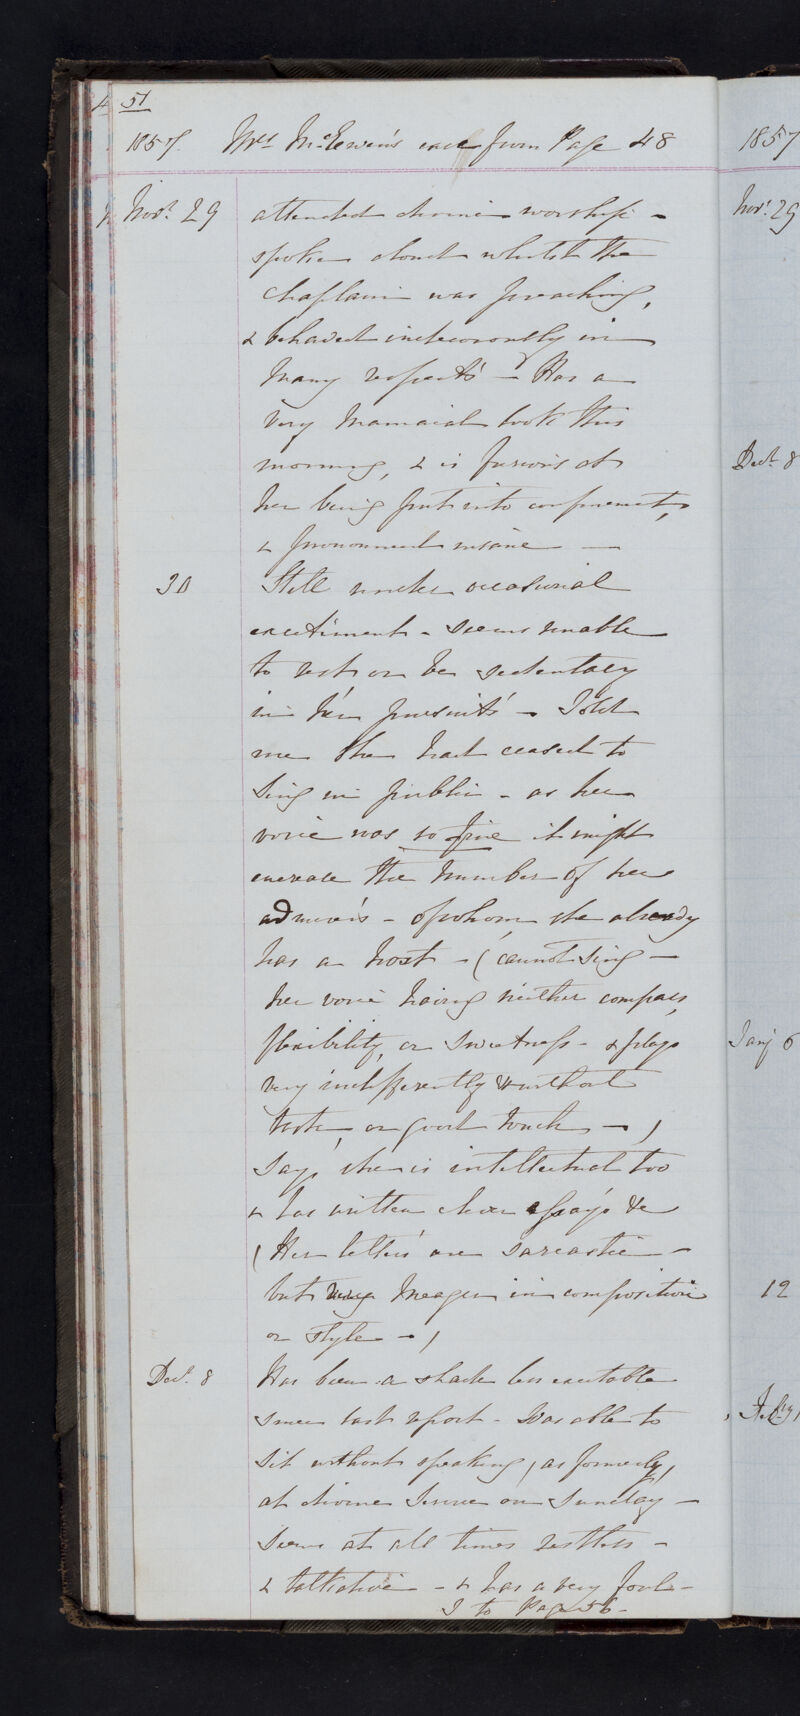 51
1857. Mrs McEwen's case from Page 48
Novr. 29 attended divine worship -
spoke aloud whilst the
Chaplain was preaching,
& behaved indecorously in
many respects - Has a
very Maniacal look this
morning, & is furious at
her being put into confinement,
& pronounced insane -
30 Still under occasional
excitement - seems unable
to rest or be sedentary
in her pursuits - Told
me she had ceased to
sing in public - as her
voice was so fine it might
increase the number of her
admirers - of whom she already
has a host - (cannot sing -
her voice having neither compass,
flexibility, or sweetness - & plays
very indifferently & without
taste, or good touch - )
Says she is intellectual too
& has written clever essays &c
(Her letters are sarcastic -
but very meagre in composition
or style - )
Decr. 8 Has been a shade less excitable
since last report - Was able to
sit without speaking, as formerly,
at divine service on Sunday -
seems at all times restless -
& talkative - & has a very fool-
to Page 56 -
1857
Novr. 29
Decr. 8
Jany 6
12
Feby 1